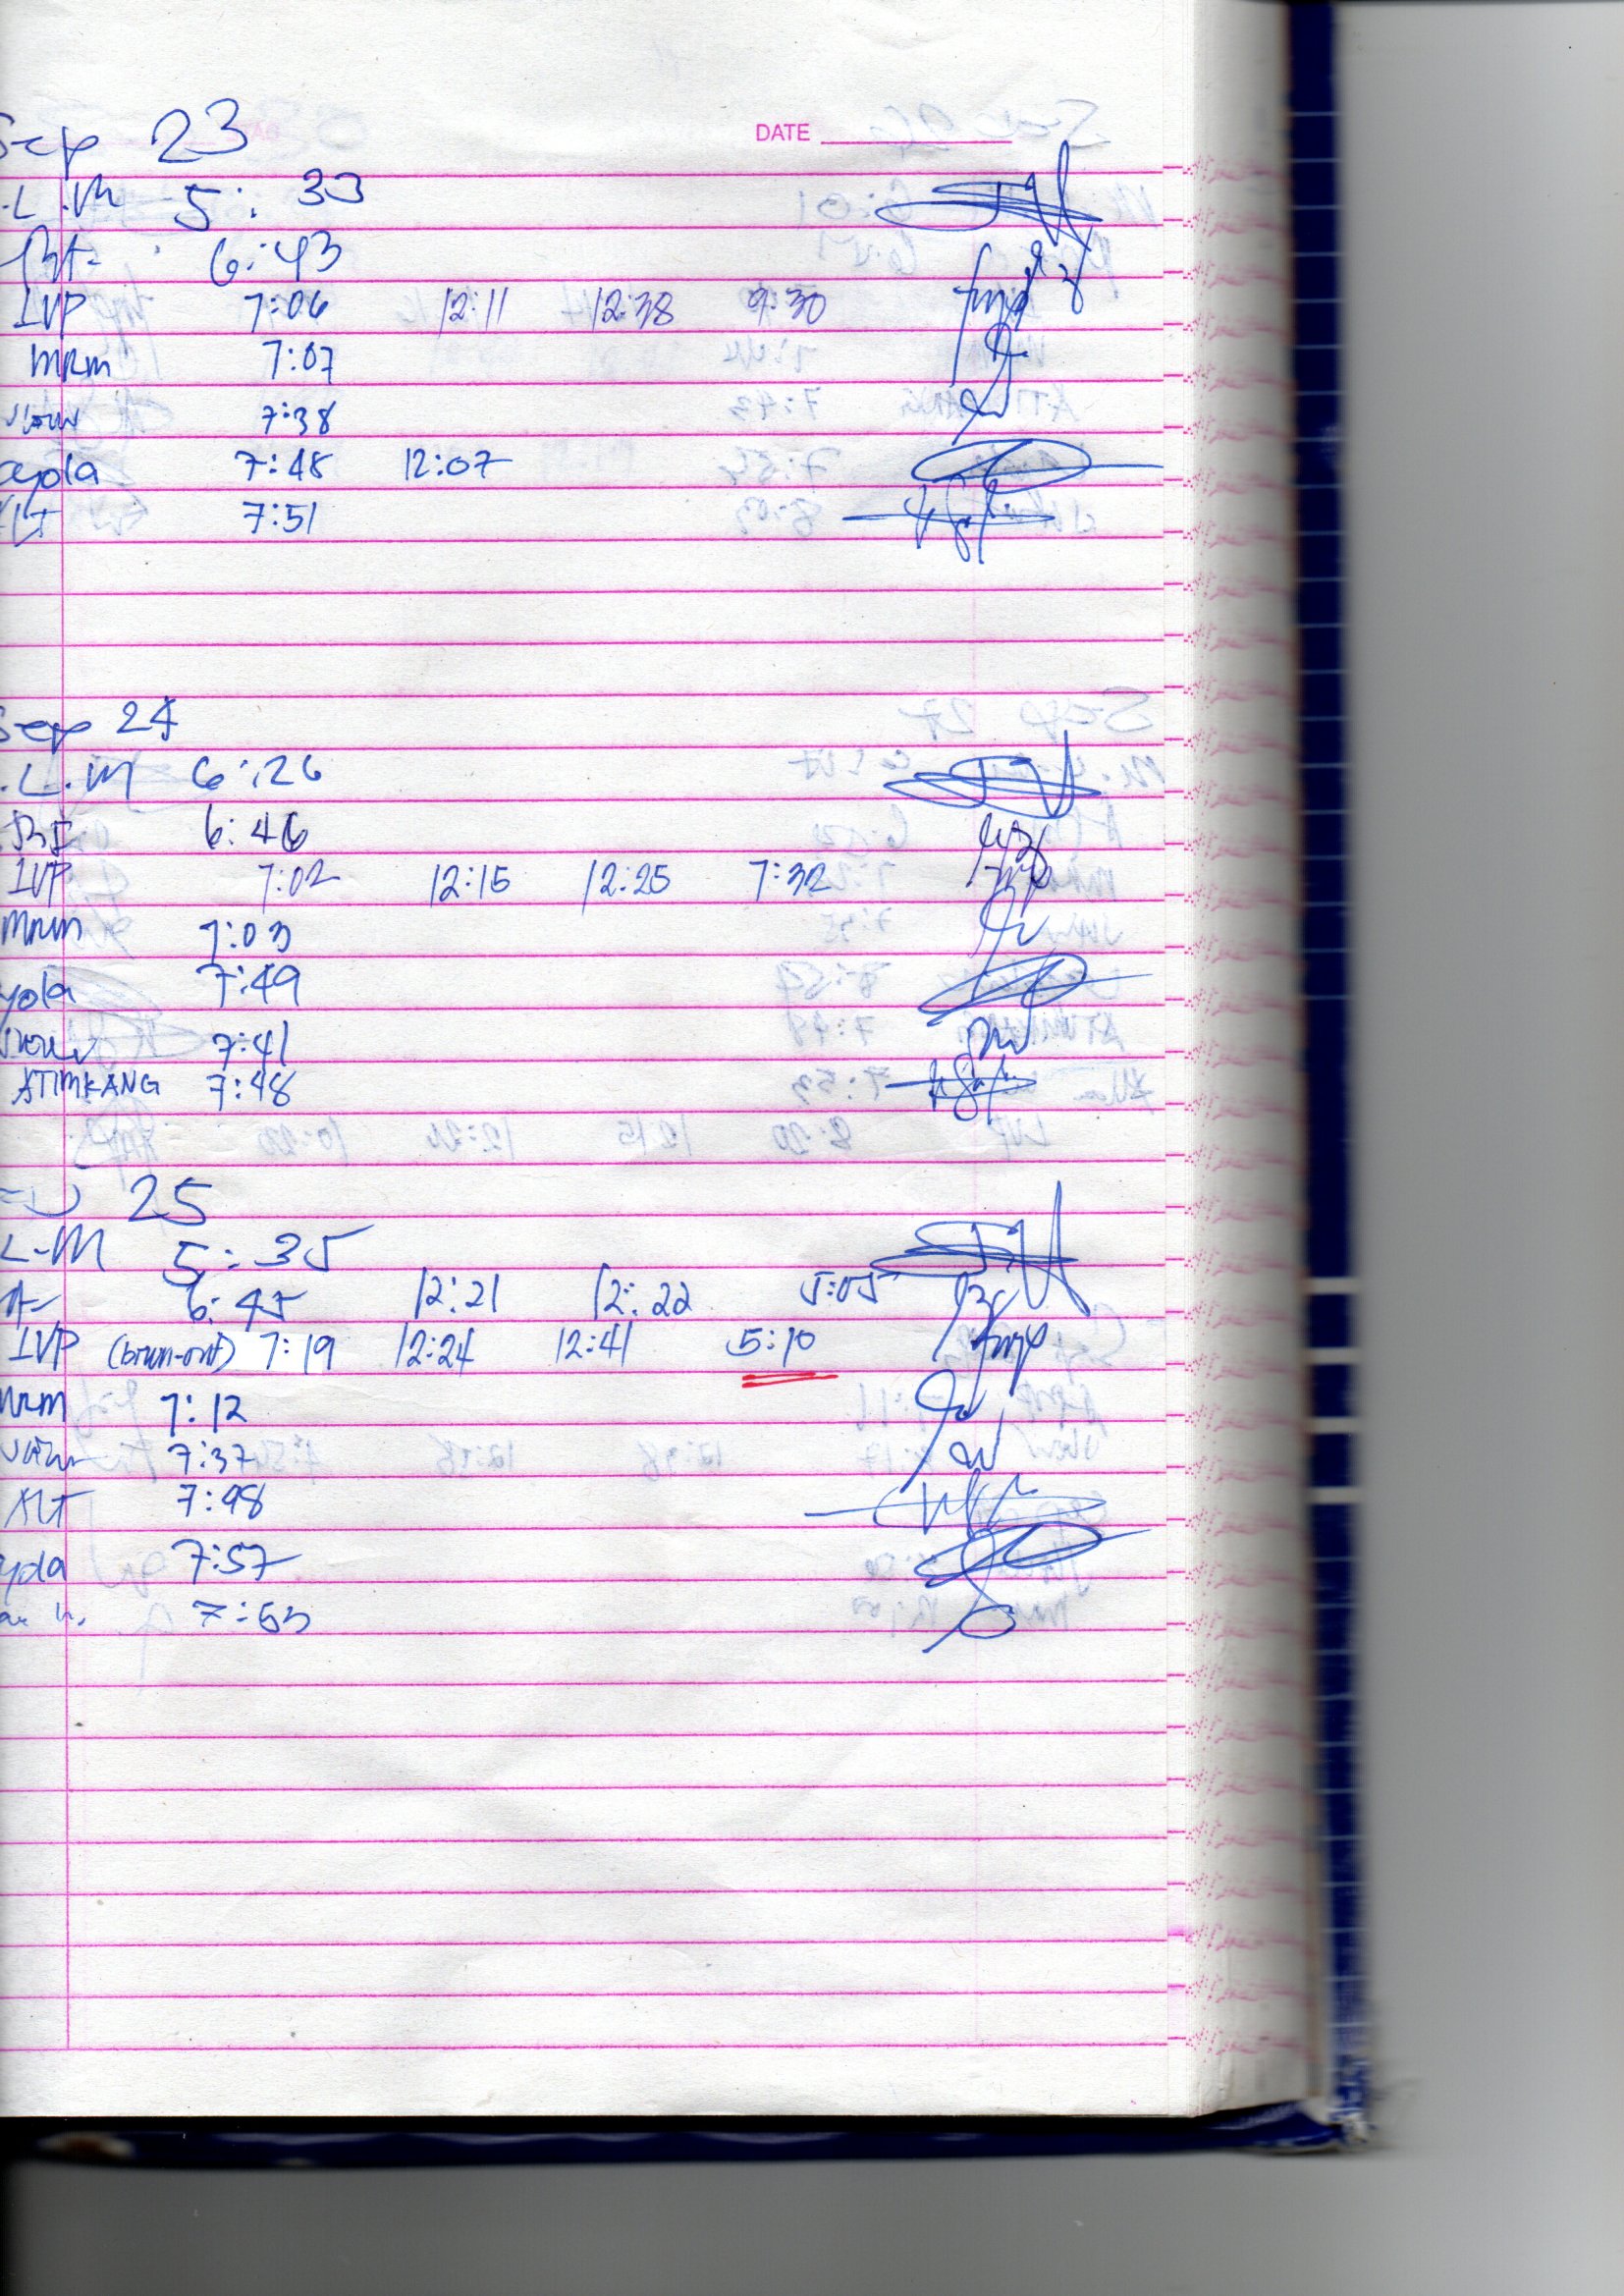 DATE
Sep 23
.L.M 5:33
6:43
LVP 7:06 12:11 12:38 9:30
MRM 7:07
7:38
yola 7:48 12:07
7:51
Sep 24
.L.M 6:26
6:46
LVP 7:02 12:15 12:25 7:32
MRM 7:03
yola 7:49
7:41
ATIMKANG 7:48
25
L-M 5:35
6:45 12:21 12:22 5:05
LVP (brown-out) 7:19 12:24 12:41 5:10
MRM 7:12
7:37
ALT 7:48
yola 7:57
7:53